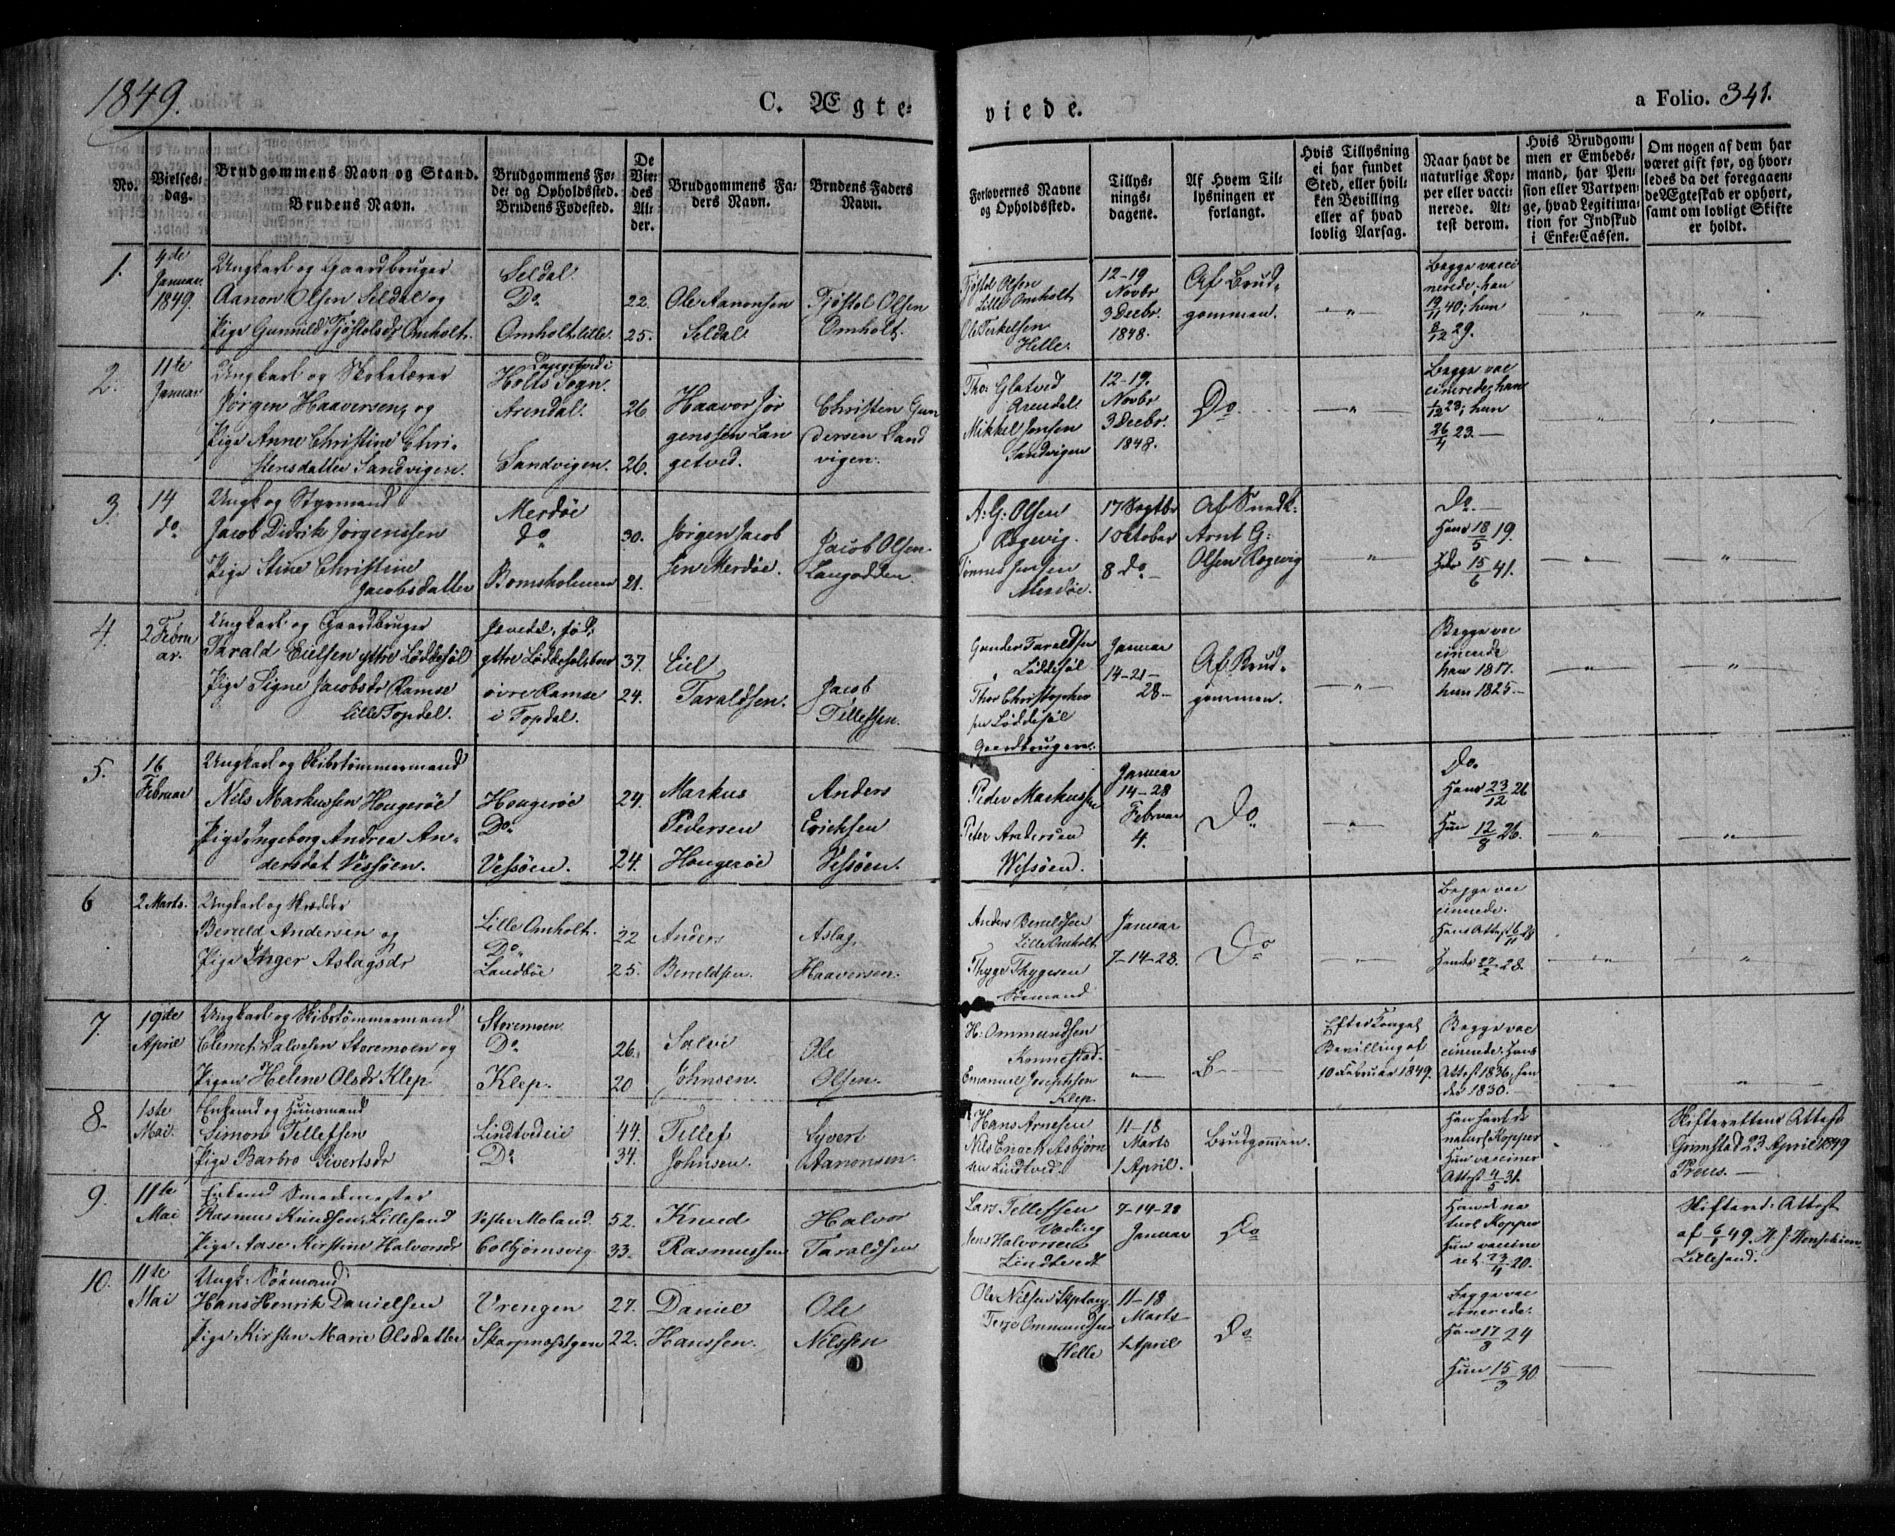 1849.
C. Ægte-
viede.
a Folio. 341.
No.
Vielses-
dag.
Brudgommens Navn og Stand.
Brudens Navn.
Brudgommens Fø-
de- og Opholdssted.
Brudens Fødested.
De
Vie-
des
Al-
der.
Brudgommens Fa-
ders Navn.
Brudens Faders
Navn.
Forlovernes Navne
og Opholdssted.
Tillys-
nings-
dagene.
Af Hvem Til-
lysningen er
forlangt.
Hvis Tillysning
ei har fundet
Sted, eller hvil-
ken Bevilling
eller af hvad
lovlig Aarsag.
Naar havt de
naturlige Kop-
per eller vacci-
nerede. At-
test derom.
Hvis Brudgom-
men er Embeds-
mand, har Pen-
sion eller Vartpen-
ge, hvad Legitima-
tion for Indskud
i Enke-Cassen.
Om nogen af dem har
været gift før, og hvor-
ledes da det foregaaen-
de Ægteskab er ophørt,
samt om lovligt Skifte
er holdt.
1.
4de
Januar
1849.
Ungkarl og Gaardbruger
Aanon Olsen Seldal og
Pige Gunnild Tjøstolsdr Omholt.
Seldal
Do
Omholt lille.
22.
25.
Ole Aanonsen
Seldal
Tjøstol Olsen
Omholt.
Tjøstol Olsen
Lille Omholt
Ole Terkelsen
Hille.
12-19
Novbr
3 Decbr.
1848.
Af Brud-
gommen.
Begge vacci
nerede; han
19/11 40; hun
8/12 29.
2.
11te
Januar
Ungkarl og Skolelærer
Jørgen Haaversen, og
Pige Anne Christine Chri-
stensdatter Sandvigen.
Langetved i
Holts Sogn.
Arendal.
Sandvigen.
26
26.
Haavor Jør
genssen Lan
getved.
Christen Gun
dersen Sand
vigen.
Tho: Glatved
Arendal.
Mikkel Jensen
Sandvigen
12-19.
Novbr
3 Decbr.
1848.
Do
Begge vac
cinerede; han
1/12 23; hun
26/4 23.
3.
14
do
Ungk og Styrmand
Jacob Didrik Jørgenssen
Pige Stine Christine
Jacobsdatter
Merdøe
do
Bomsholmen
30.
21.
Jørgen Jacob
sen Merdøe.
Jacob Olsen
Langodden.
A: G: Olsen
Rogevig.
Tønnes Jensen
Merdøe.
17 Septbr
1 Oktober
8 do
Af Snedk:
Arnt G:
Olsen Rogevig
Do.
Hans 18/5 19.
15/6 41.
4.
2 Febru
ar.
Ungkarl og Gaardbruger
Tarald Eielsen yttre Løddesøl
Pige Signe Jacobsdr Ramse
lille Topdal.
yttre Løddesøl
øvre Ramse
i Topdal.
37.
24.
Eiel
Taraldsen.
Jacob
Tellefsen.
Gunder Taraldsen
Løddesøl
Thor Christopher
sen Løddesøl
Gaardbrugere.
Januar
14-21-
28.
Af Brud-
gommen.
Begge vac
cinerede
han 1817.
hun 1825.
5.
16
Februar
Ungkarl og Skibstømmermand
Nils Markussen Hougerøe
Pige Ingeborg Andrea An-
dersdat Vessøen.
Hougerøe
Do
Vessøen.
24.
24.
Markus
Pedersen
Hougerøe
Anders
Erichsen
Vessøen.
Peder Markussen
Peter Andersen
Wessøen.
Januar
14-28
Februar
4.
Do
Do.
Hans 23/12 26
Hun 12/8 26.
6
2 Marts.
Ungkarl og Skrædder
Beruld Andersen og
Pige Inger Aslagsdr
Lille Omholt.
Do.
Landbøe
22
25.
Anders
Beruldsen.
Aslag
Haaversen.
Anders Beruldsen
Lille Omholt
Thyge Thygesen
Sømand
Januar
7-14-28.
Do
Begge vac
cinerede.
Hans Attest 16/11 28
27/2 28.
7.
19de
April
Ungkarl og Skibstømmermand
Clemet Salvesen Storemoen og
Pigen Helene Olsdr Klep.
Storemoen
Do
Klep.
26.
20
Salve
Johnsen.
Ole
Olsen.
H: Ommundsen
Konnestad.
Emanuel Josephsen
Klep.
B
Efter Kongel
Bevilling af
10 Februar 1849.
Begge vac
cinerede. Hans
Attest 1836, hen
des 1830.
8.
1ste
Mai.
Enkemd og Huusmand
Simon Tellefsen
Pige Barbro Sivertsdr
Lindtvedeie
Do
44.
34.
Tellef
Johnsen.
Syvert
Aanonsen.
Hans Arnesen
Nils Enock Asbjørn
sen Lindtved.
11-18
Marts
1 April.
Brudgomen.
Han havt de
naturl Kopper
Hun vacciner
Attest 4/5 31.
Skifterettens Attest
Grimstad 23 April 1849
Preus.
9.
11te
Mai
Enkemd Smedemester
Rasmus Knudsen, Lillesand
Pige Aase Kirstine Halvorsdr
Vestre Moland.
Colbjørnsvig
52.
33.
Knud
Rasmussen
Halvor
Taraldsen
Lars Tellefsen
Jens Halvorsen
Lindtvedt
7-14-28
Januar
Do
Han de na
turl Kopper
Hun vaccine
ret 23/11 20.
Skifteret: Attest
af 6/1 49. H. J.
Lillesand.
10.
11te
Mai
Ungk: Sømand
Hans Henrik Danielsen
Pige Kirsten Marie Olsdatter
Vrengen
Skarpnæstgen
27.
22.
Daniel
Hanssen.
Ole
Nilssen
Ole Nilsen
Terje Ommundsen
Helle
11-18
Marts
1 April
Do
Begge vac
cinerede.
Hans 17/8 24
Hun 15/3 30